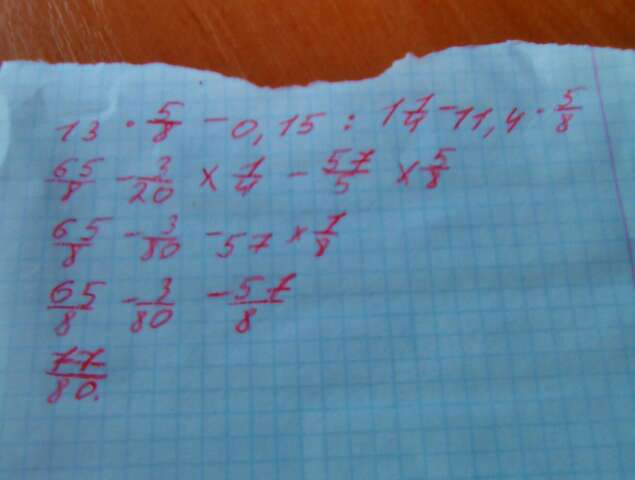 13 · 5/8 - 0,15 : 1 1/4 - 11,4 · 5/8
65/8 - 3/20 × 1/4 - 57/5 × 5/8
65/8 - 3/80 - 57 × 1/8
65/8 - 3/80 - 57/8
77/80.